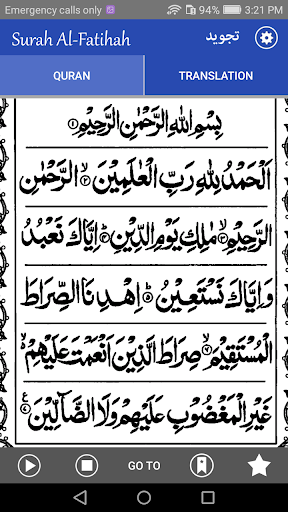 Emergency calls only 94% 3:21 PM
Surah Al-Fatihah تجويد
QURAN TRANSLATION
بِسْمِ اللهِ الرَّحْمٰنِ الرَّحِيْمِ ۝١
اَلْحَمْدُ لِلّٰهِ رَبِّ الْعٰلَمِيْنَ ۝٢ الرَّحْمٰنِ
الرَّحِيْمِ ۝٣ مٰلِكِ يَوْمِ الدِّيْنِ ۝٤ اِيَّاكَ نَعْبُدُ
وَاِيَّاكَ نَسْتَعِيْنُ ۝٥ اِهْدِنَا الصِّرَاطَ
الْمُسْتَقِيْمَ ۝٦ صِرَاطَ الَّذِيْنَ اَنْعَمْتَ عَلَيْهِمْ
غَيْرِ الْمَغْضُوْبِ عَلَيْهِمْ وَلَا الضَّآلِّيْنَ ۝٧
GO TO